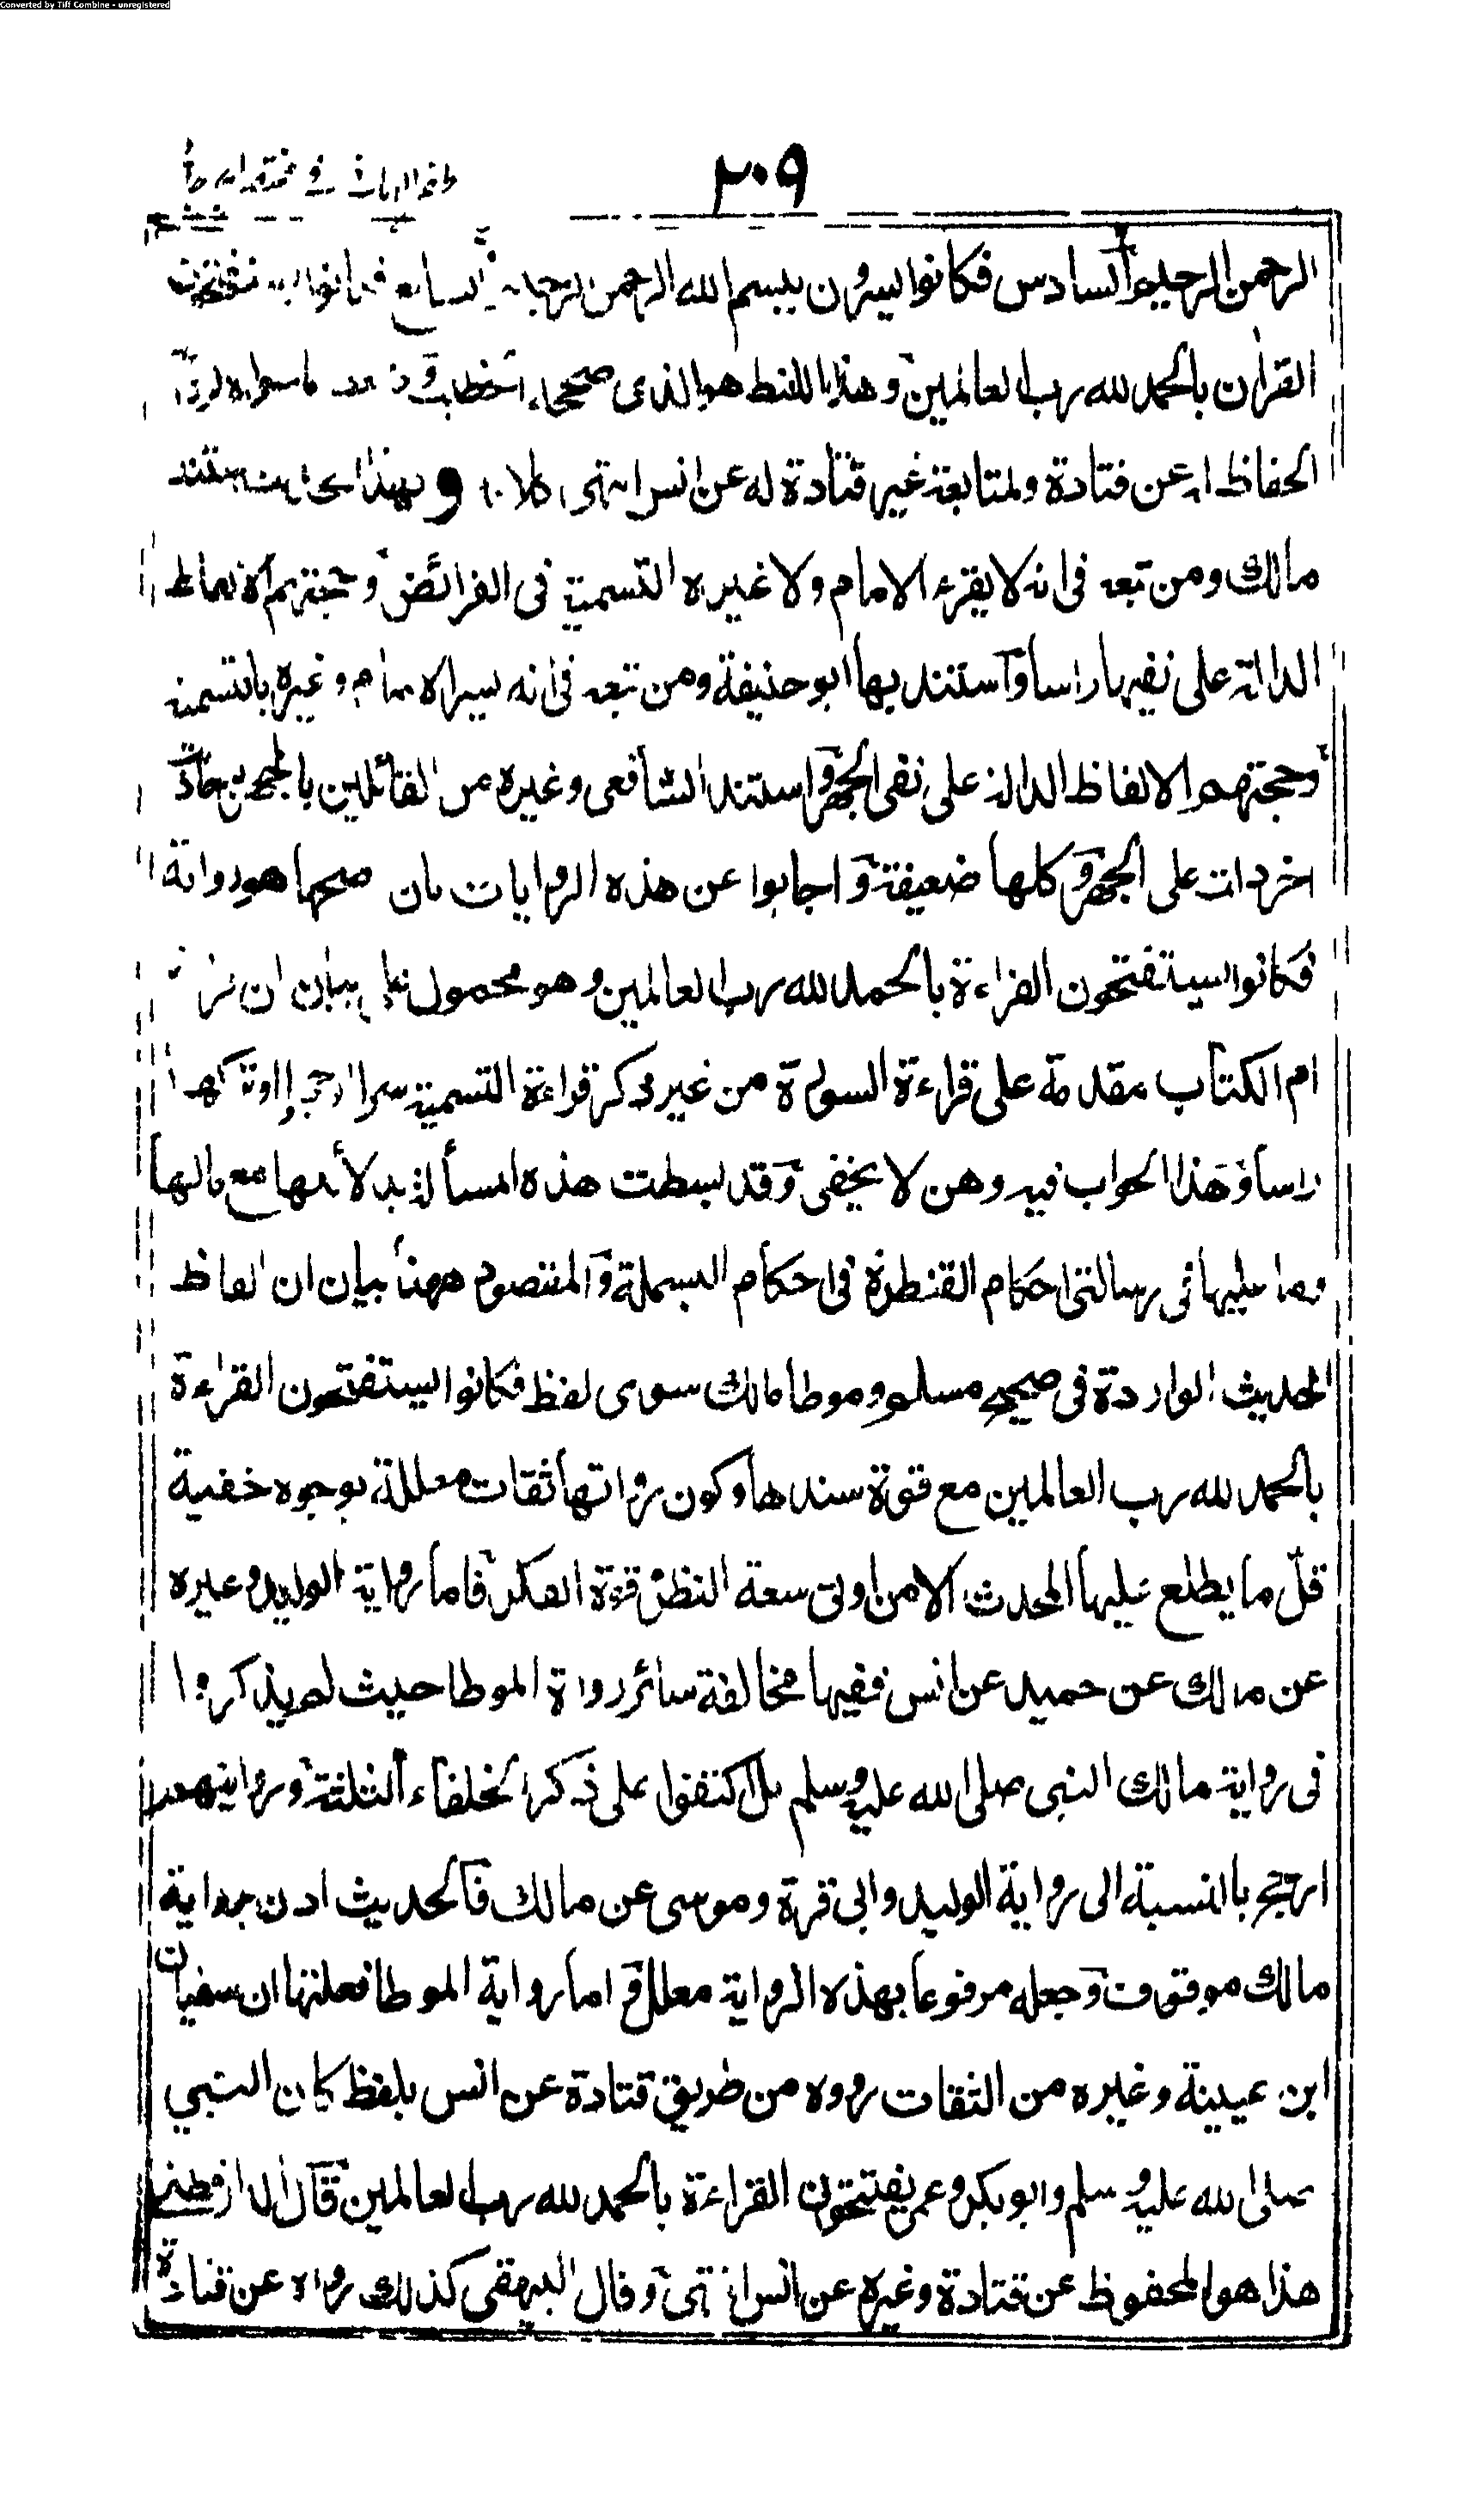 Converted by Tiff Combine - unregistered
٢٠٩
ظفر الامانى فى مختصر الجرجانى
الرحمن الرحيم والسادس فكانوا يسرون ببسم الله الرحمن الرحيم السابع فكانوا يستفتحون
القرآن بالحمد لله رب العالمين وهذا اللفظ هو الذى صححه الخطيب وضعف ما سواه لرواية
الحفاظ له عن قتادة ولمتابعة غير قتادة له عن انس انتهى كلامه وبهذا الحديث استند
مالك ومن تبعه فى انه لا يقرء الامام ولا غيره التسمية فى الفرائض وحجتهم الالفاظ
الدالة على نفيها راسا واستند بها ابو حنيفة ومن تبعه فى انه يسر الامام وغيره بالتسمية
وحجتهم الالفاظ الدالة على نفى الجهر واستند الشافعى وغيره من القائلين بالجهر باحاديث
اخر دالة على الجهر وكلها ضعيفة واجابوا عن هذه الروايات بان اصحها هو رواية
فكانوا يستفتحون القراءة بالحمد لله رب العالمين وهو محمول على بيان ان قراءة
ام الكتاب مقدمة على قراءة السورة من غير ذكر قراءة التسمية سرا او جهرا او تركها
راسا وهذا الجواب فيه وهن لا يخفى وقد بسطت هذه المسألة بدلائلها مع مالها
وما عليها فى رسالتى احكام القنطرة فى احكام البسملة والمقصود ههنا بيان ان الفاظ
الحديث الواردة فى صحيح مسلم وموطا مالك سوى لفظ فكانوا يستفتحون القراءة
بالحمد لله رب العالمين مع قوة سندها وكون رواتها ثقات معللة بوجوه خفية
قل ما يطلع عليها المحدث الا من اوتى سعة النظر وقوة الفكر فاما رواية الوليد وغيره
عن مالك عن حميد عن انس ففيها مخالفة سائر رواة الموطا حيث لم يذكروا
فى رواية مالك النبى صلى الله عليه وسلم بل اكتفوا على ذكر الخلفاء الثلثة وروايتهم
ارجح بالنسبة الى رواية الوليد وابى قرة وموسى عن مالك فالحديث اذن برواية
مالك موقوف وجعله مرفوعا بهذه الرواية معلل واما رواية الموطا فعلتها ان سفيان
ابن عيينة وغيره من الثقات رووه من طريق قتادة عن انس بلفظ كان النبي
صلى الله عليه وسلم وابو بكر وعمر يفتتحون القراءة بالحمد لله رب العالمين قال الدارقطنى
هذا هو المحفوظ عن قتادة وغيره عن انس انتهى وقال البيهقى كذلك رواه عن قتادة